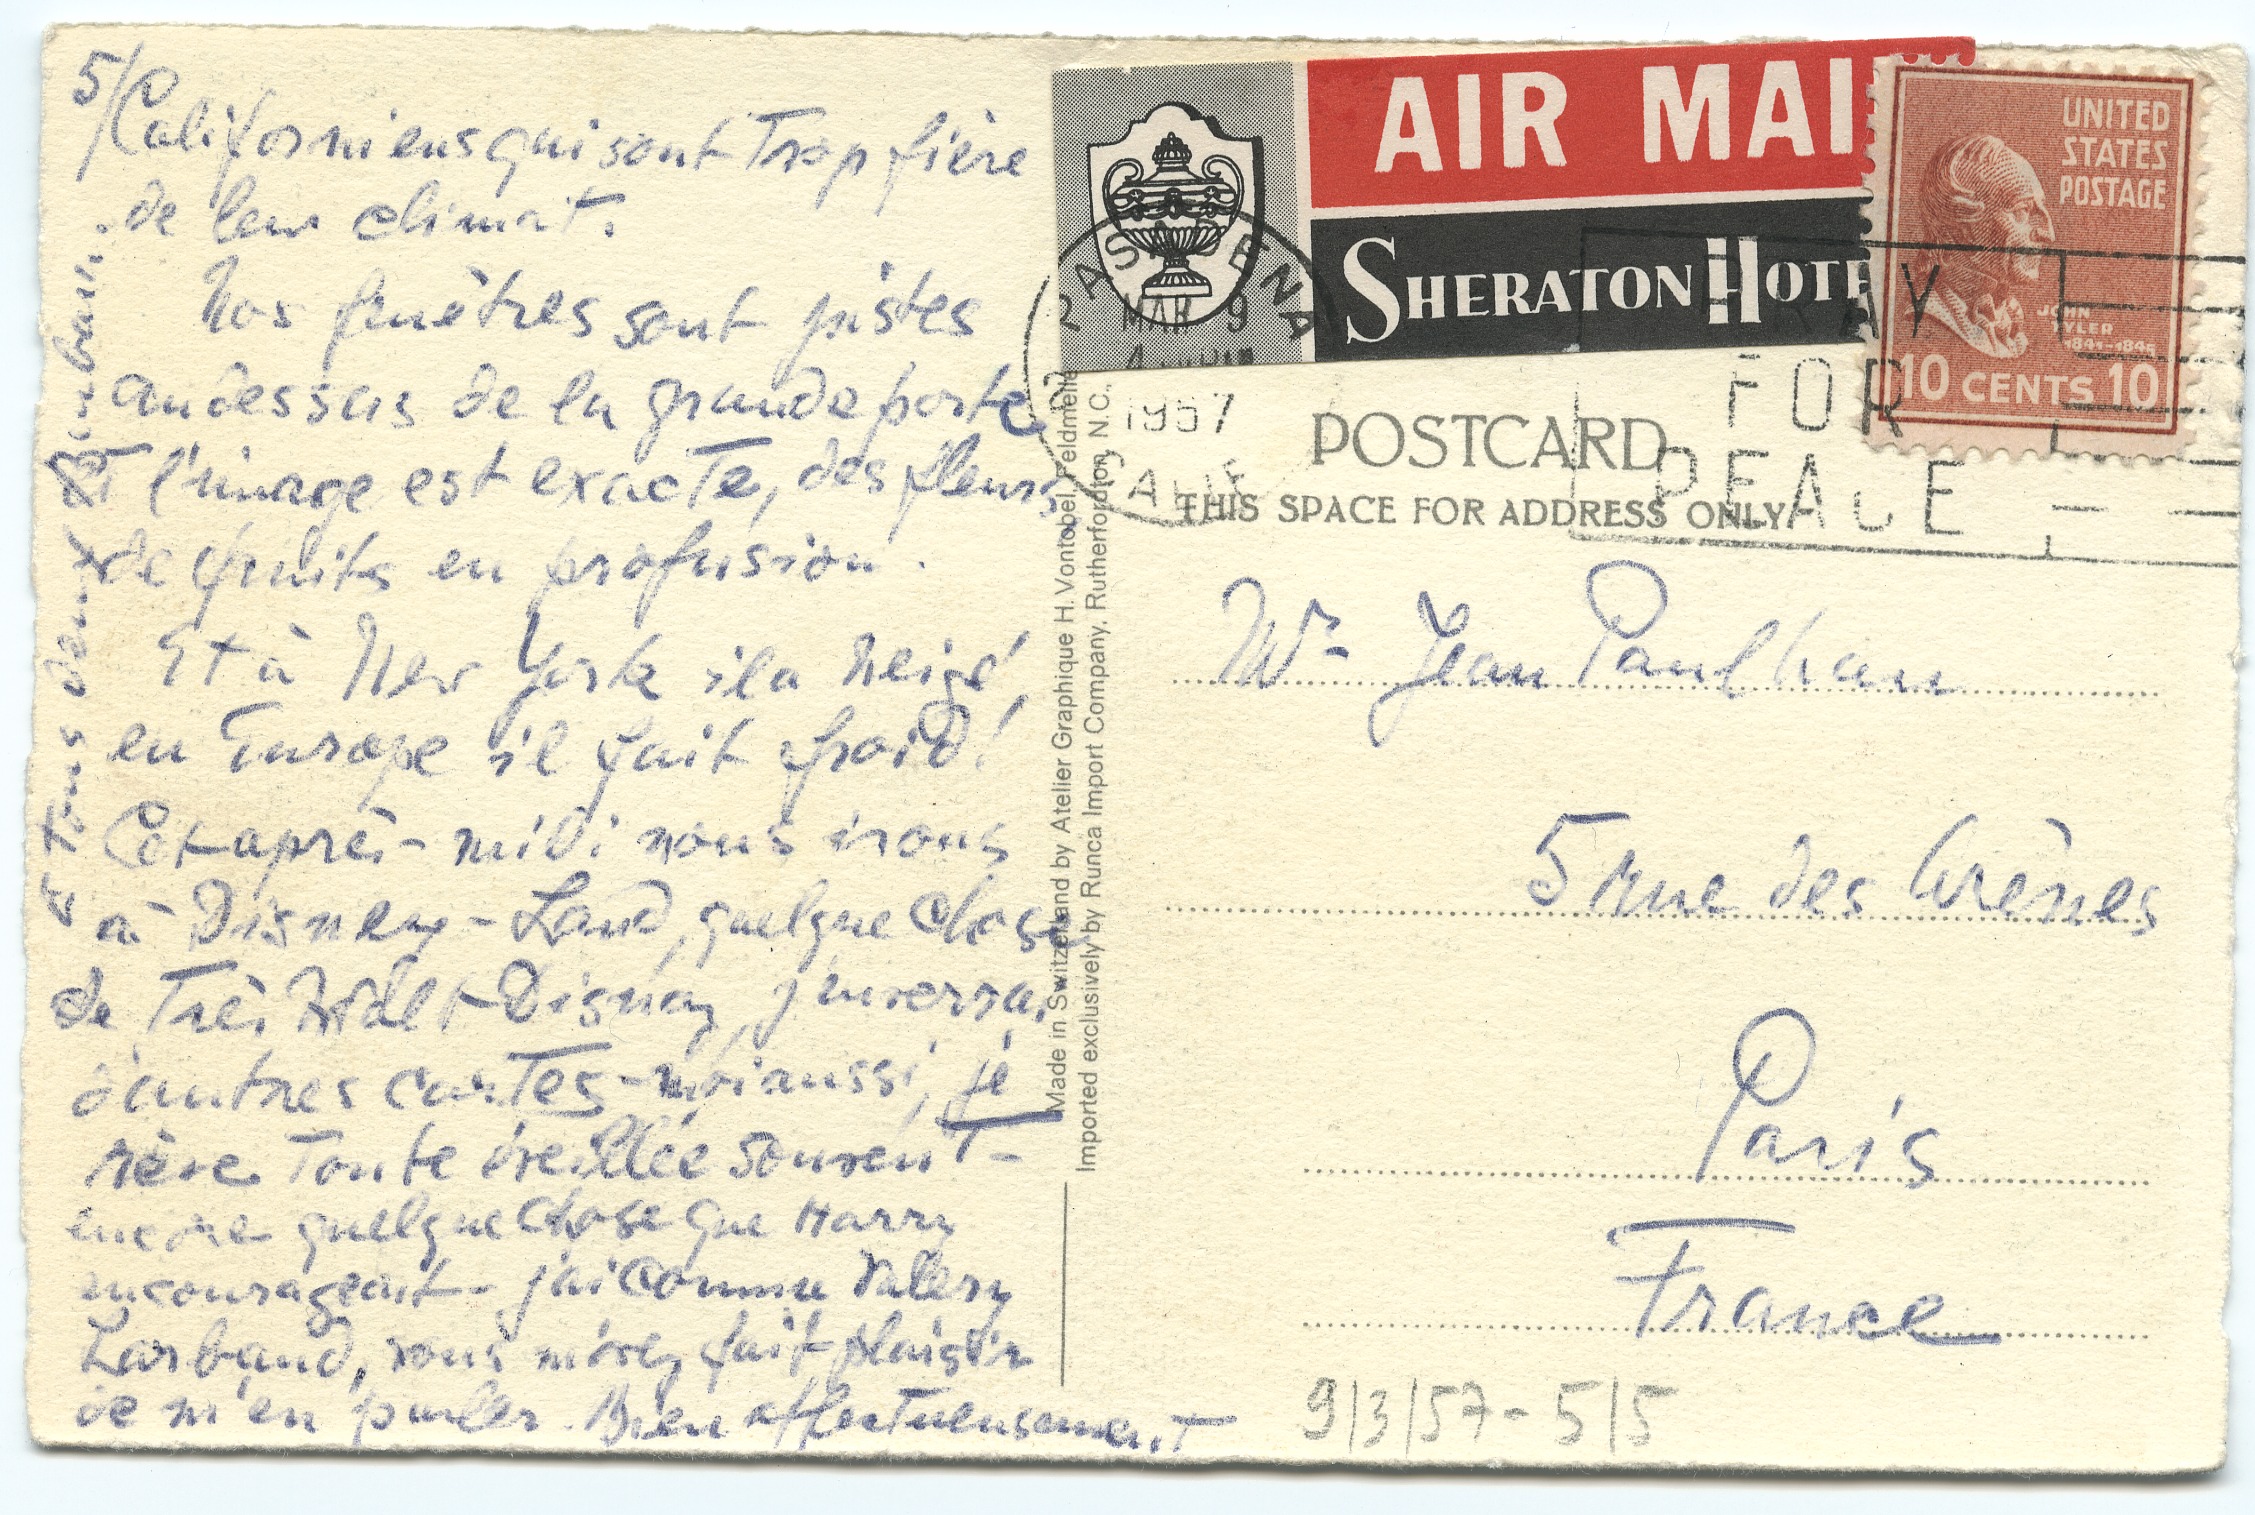 5/Californiens qui sont trop fière
de leur climat.
Nos fenêtres sont justes
audessus de la grande porte
et l'image est exacte, des fleurs,
de fruits en profusion.
Et à New York il a neigé,
en Europe il fait froid!
Cet après-midi nous irons
à Disney-Land, quelque chose
de très Walt Disney, j'enverrai
d'autres cartes - moi aussi, je
rêve toute éveillée souvent -
encore quelque chose que Harry
encourageait - j'ai connu Valery
Larbaud, vous m'avez fait plaisir
de m'en parler. Bien affectueusement
à tous deux
AIR MAIL
SHERATON HOTE
PASADENA
MAR 9
1957
CALIF
PRAY
FOR
PEACE
UNITED
STATES
POSTAGE
JOHN
TYLER
1841-1845
10 CENTS 10
POSTCARD
THIS SPACE FOR ADDRESS ONLY
Made in Switzerland by Atelier Graphique H. Vontobel, Feldmeilen
Imported exclusively by Runca Import Company, Rutherfordton, N.C.,
Mr Jean Paulhan
5 rue des Arènes
Paris
France
9/3/57 - 5/5